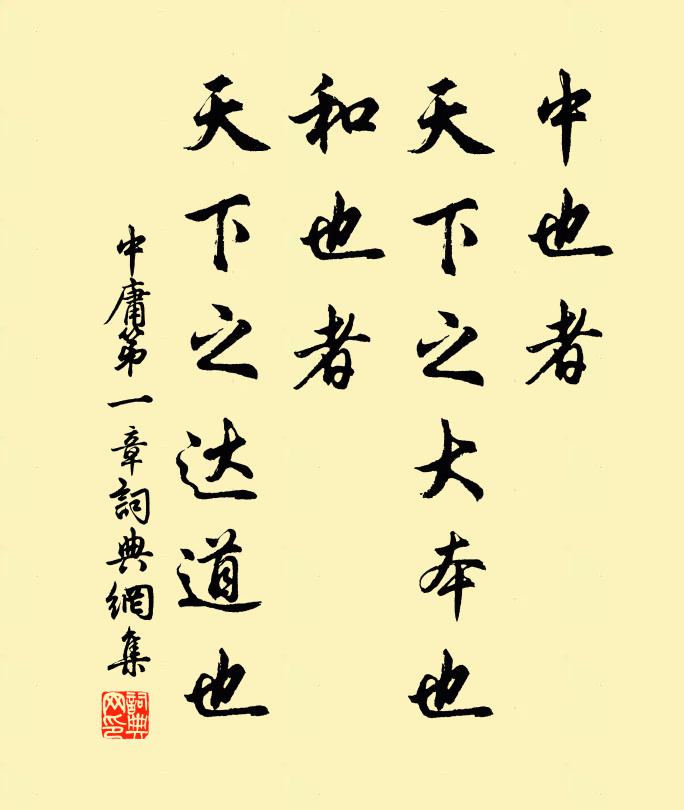 中也者
天下之大本也
和也者
天下之达道也
中庸第一章詞典網集
詞典网印